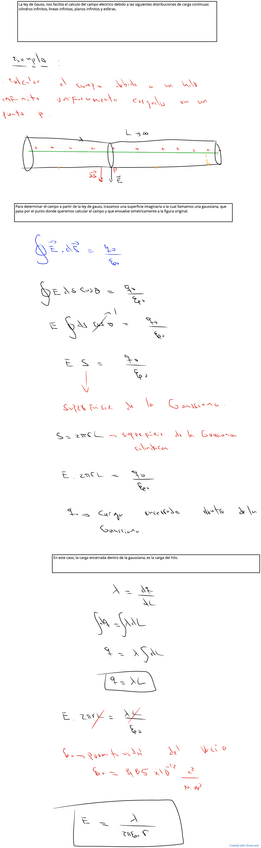 La ley de Gauss, nos facilita el calculo del campo electrico debido a las siguientes distribuciones de carga continuas:
cilindros infinitos, lineas infinitas, planos infinitos y esferas.
Ejemplo:
Calcular el campo debido a un hilo
infinito uniformemente cargado en un
punto P.
λ L → ∞
+ + + + + + + +
P
dS E
Para determinar el campo a partir de la ley de gauss, trazamos una superficie imaginaria a la cual llamamos una gaussiana, que
pase por el punto donde queremos calcular el campo y que envuelve simetricamente a la figura original.
∮ E · dS = q₀/ε₀
∮ E dS cos θ = q₀/ε₀
E ∮ dS cos θ¹ = q₀/ε₀
E S = q₀/ε₀
Superficie de la Gaussiana.
S = 2πrL → superficie de la Gaussiana
cilindrica
E · 2πrL = q₀/ε₀
q₀ → Carga encerrada dentro de la
Gaussiana.
En este caso, la carga encerrada dentro de la gaussiana, es la carga del hilo.
λ = dq/dL
∫dq = ∫λdL
q = λ∫dL
q = λL
E · 2πrL = λL/ε₀
ε₀ → permitividad del vacío
E = λ/2πε₀r